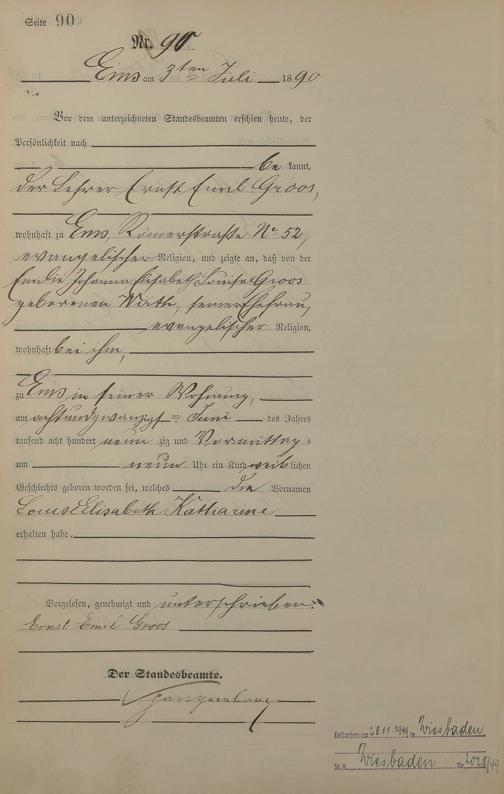 Seite 90
Nr. 90
Ems am 3ten Juli 1890
Vor dem unterzeichneten Standesbeamten erschien heute, der
Persönlichkeit nach
be kannt,
der Lehrer Ernst Emil Groos,
wohnhaft zu Ems, Römerstraße No 52,
evangelischer Religion, und zeigte an, daß von der
Emilie Johanna Elisabeth Louise Groos
geborenen Wirth, seiner Ehefrau,
evangelischer Religion,
wohnhaft bei ihm,
zu Ems in seiner Wohnung,
am achtundzwanzigsten Juni des Jahres
tausend acht hundert neun zig und Vormittags
um neun Uhr ein Kind weiblichen
Geschlechts geboren worden sei, welches die Vornamen
Louis Elisabeth Kätharine
erhalten habe.
Vorgelesen, genehmigt und unterschrieben.
Ernst Emil Groos
Der Standesbeamte.
Gestorben am 28.11.1949 in Wiesbaden
St.A. Wiesbaden Nr. 2028/49